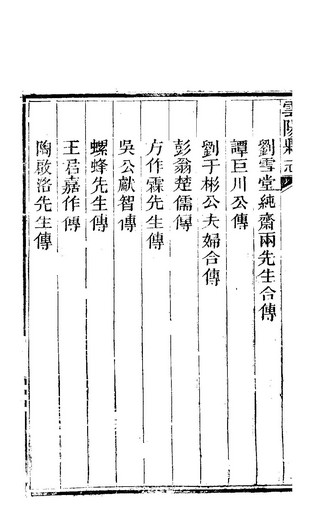 雲陽縣志
劉雪堂純齋兩先生合傳
譚巨川公傳
劉于彬公夫婦合傳
彭翁楚儒傳
方作霖先生傳
吳公獻智傳
螺蜂先生傳
王君嘉作傳
陶啟洛先生傳